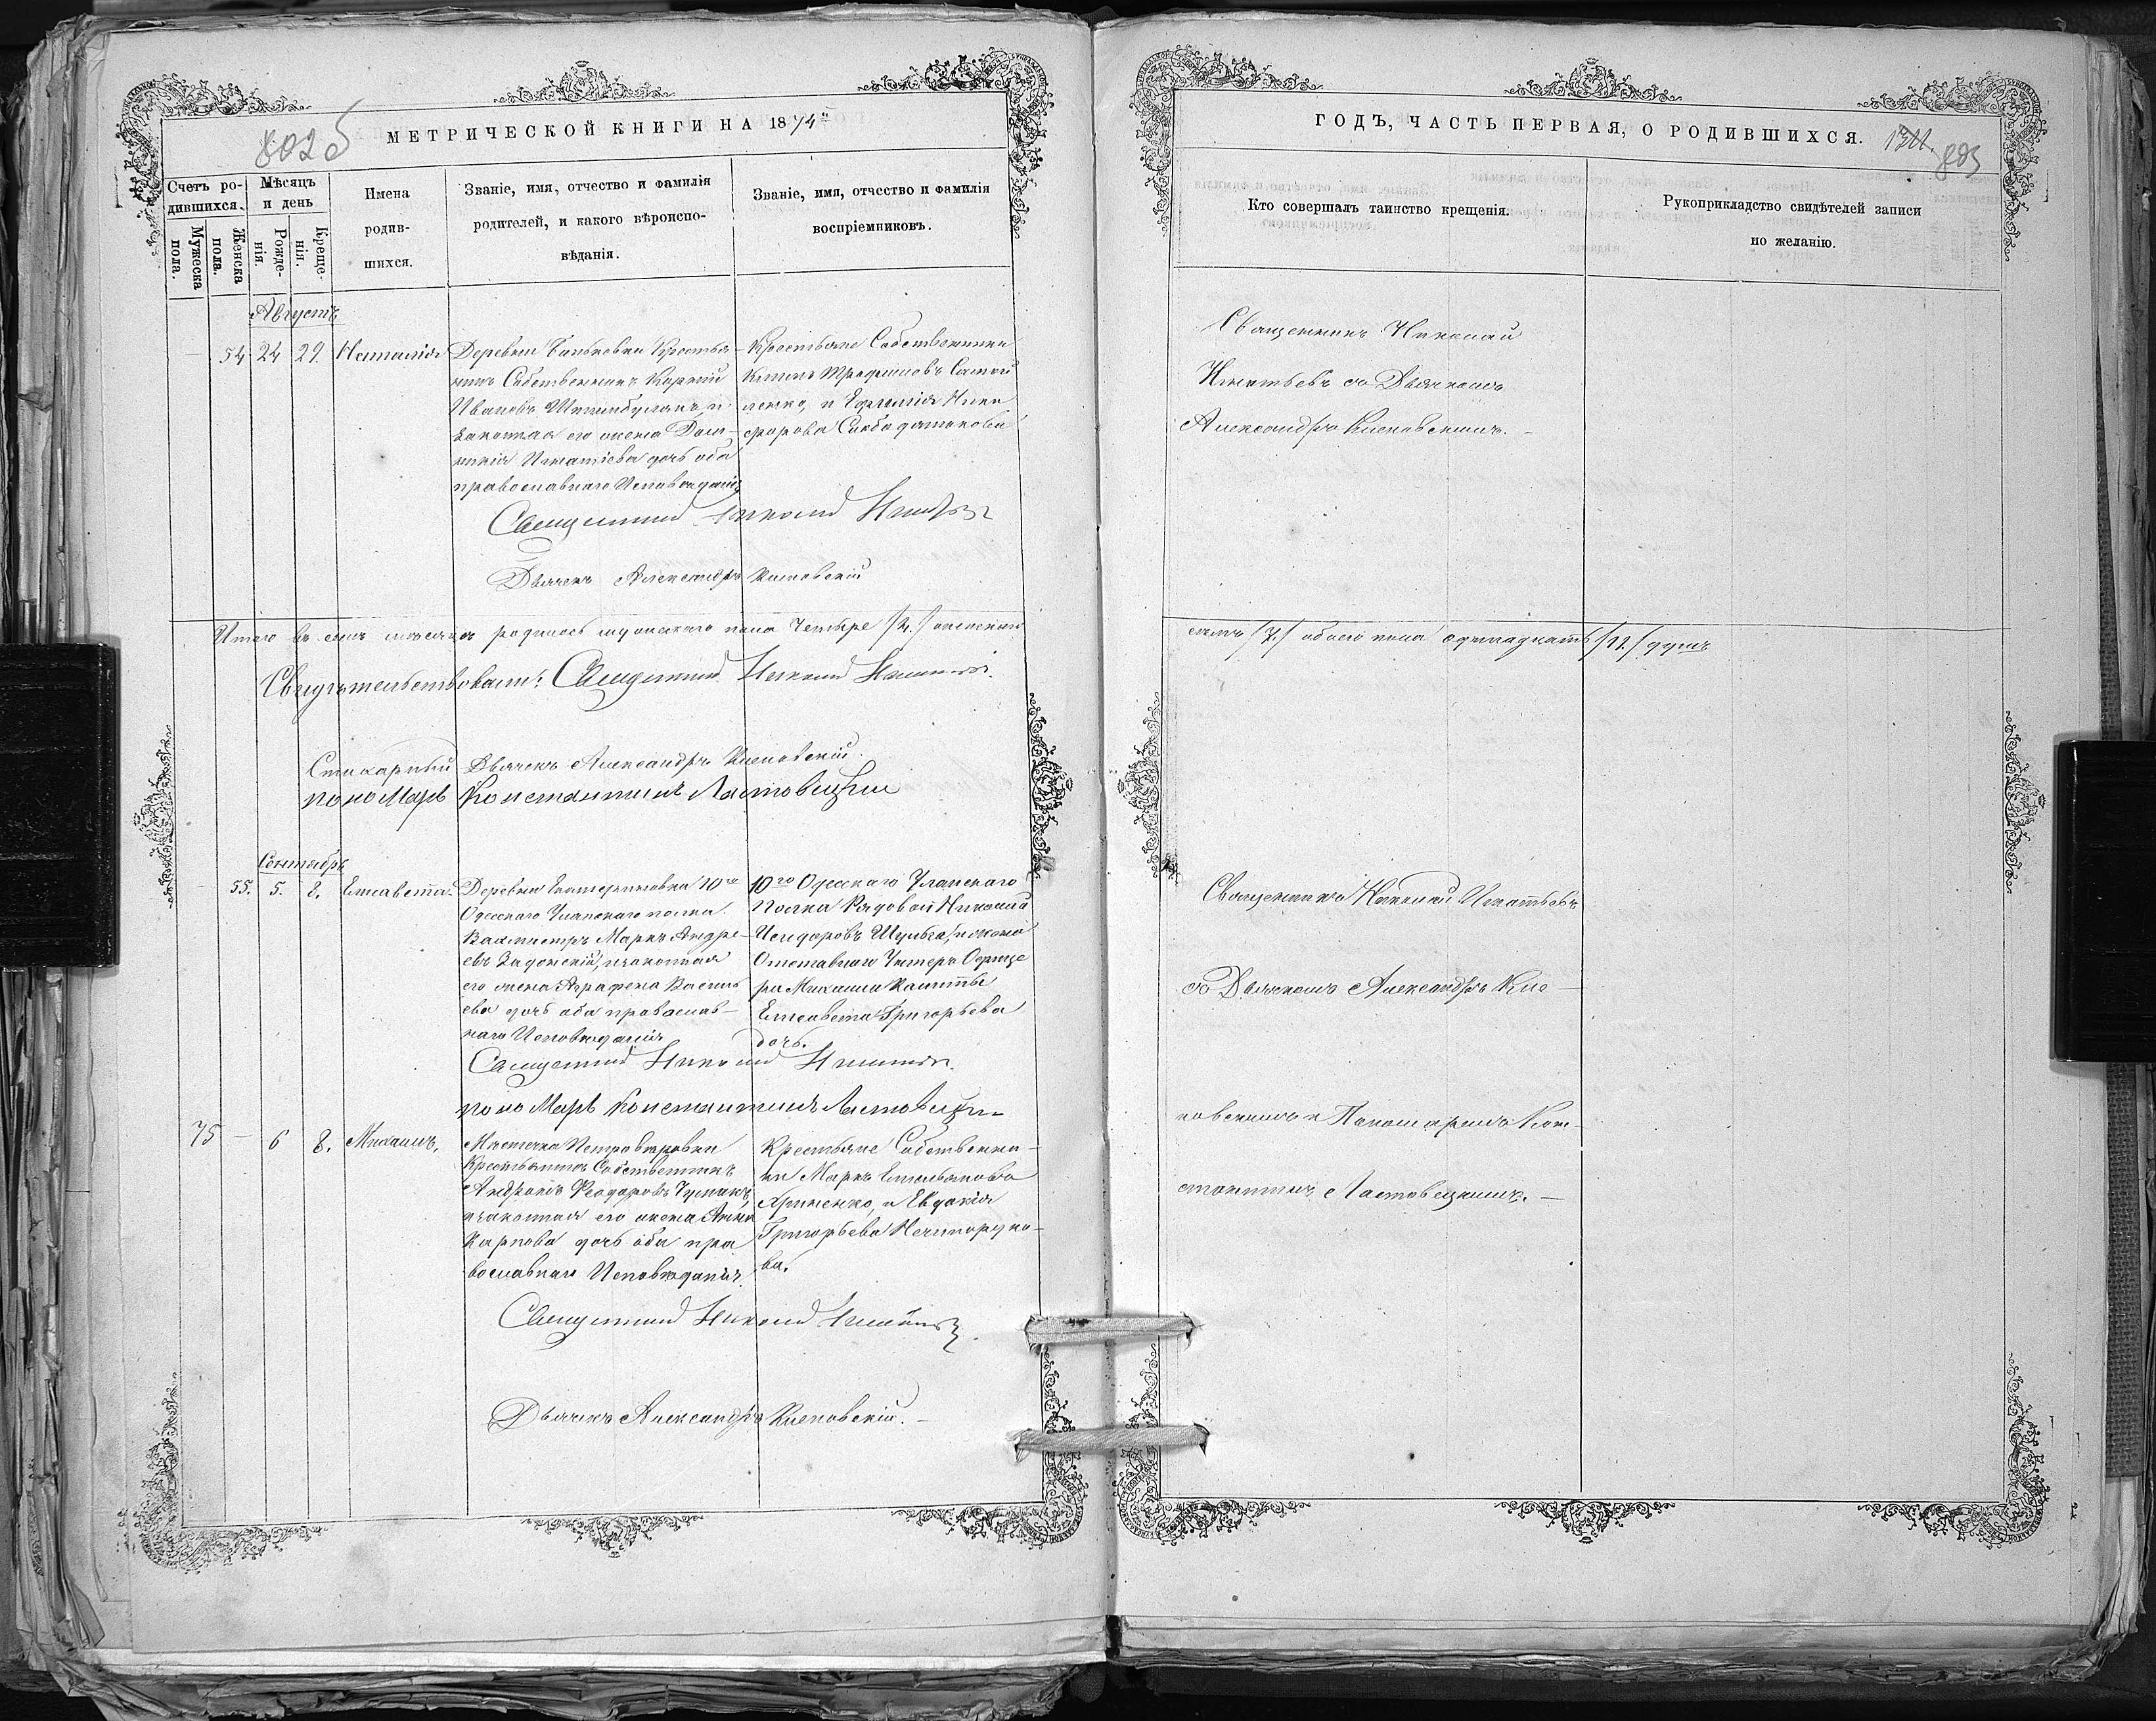 802 б
МЕТРИЧЕСКОЙ КНИГИ НА 1874
Счетъ ро-
дившихся.
Мужеска
пола.
Женска
пола.
Мѣсяцъ
и день
Рожде-
нія.
Креще-
нія.
Имена
родив-
шихся.
Званіе, имя, отчество и фамилія
родителей, и какого вѣроиспо-
вѣданія.
Званіе, имя, отчество и фамилія
воспріемниковъ.
Августъ
54 24 29. Наталія
Деревни Крестья-
нинъ Собственникъ Карпъ
Ивановъ и
законная его жена Дом-
никія Игнатіева дочь оба
православнаго Исповѣданія
Крестьяне Собственники
Трофимовъ Самой
ленко, и Евфимія Ники
форова
Священникъ Николай Игнатьевъ
Дьячекъ Александръ Кисновскій
Итого въ семъ мѣсяцѣ родилось мужескаго пола Четыре /4./ женскаго
Свидѣтельствовали: Священникъ Николай Игнатьевъ.
Стихарный Дьячекъ Александръ Кисновскій
пономарь Константинъ Ластовецкій
Сентябрь
55. 5. 8. Елисавета.
Деревни Екатериновки 10го
Одесскаго Уланскаго полка
Вахмистръ Маркъ Андре-
евъ Задонскій, и законная
его жена Аграфена Василь
ева дочь оба православ-
наго Исповѣданія
10го Одесскаго Уланскаго
Полка Рядовой Николай
Исидоровъ Шульга, и жена
Отставнаго Унтеръ Офице
ра Михаила
Елисавета Григорьева
дочь.
Священникъ Николай Игнатьевъ.
пономарь Константинъ Ластовецкій
75 — 6 8. Михаилъ.
Мѣстечка Петровѣровки
Крестьянинъ Собственникъ
Андроній Феодоровъ Чумакъ,
и законная его жена Анна
Карпова дочь оба пра
вославнаго Исповѣданія.
Крестьяне Собственни-
ки Маркъ Емельяновъ
Хриненко, и Евдокія
Григорьева Нечипоруко-
ва.
Священникъ Николай Игнатьевъ
Дьячекъ Александръ Кисновскій.
ГОДЪ, ЧАСТЬ ПЕРВАЯ, О РОДИВШИХСЯ.
803
Кто совершалъ таинство крещенія.
Рукоприкладство свидѣтелей записи
по желанію.
Священникъ Николай
Игнатьевъ съ Дьячкомъ
Александромъ Кисновскимъ.
семь /7./ обоего пола одинадцать /11./ душъ
Священникъ Николай Игнатьевъ
съ Дьячкомъ Александромъ Кис-
новскимъ и Пономаремъ Кон-
стантиномъ Ластовецкимъ.